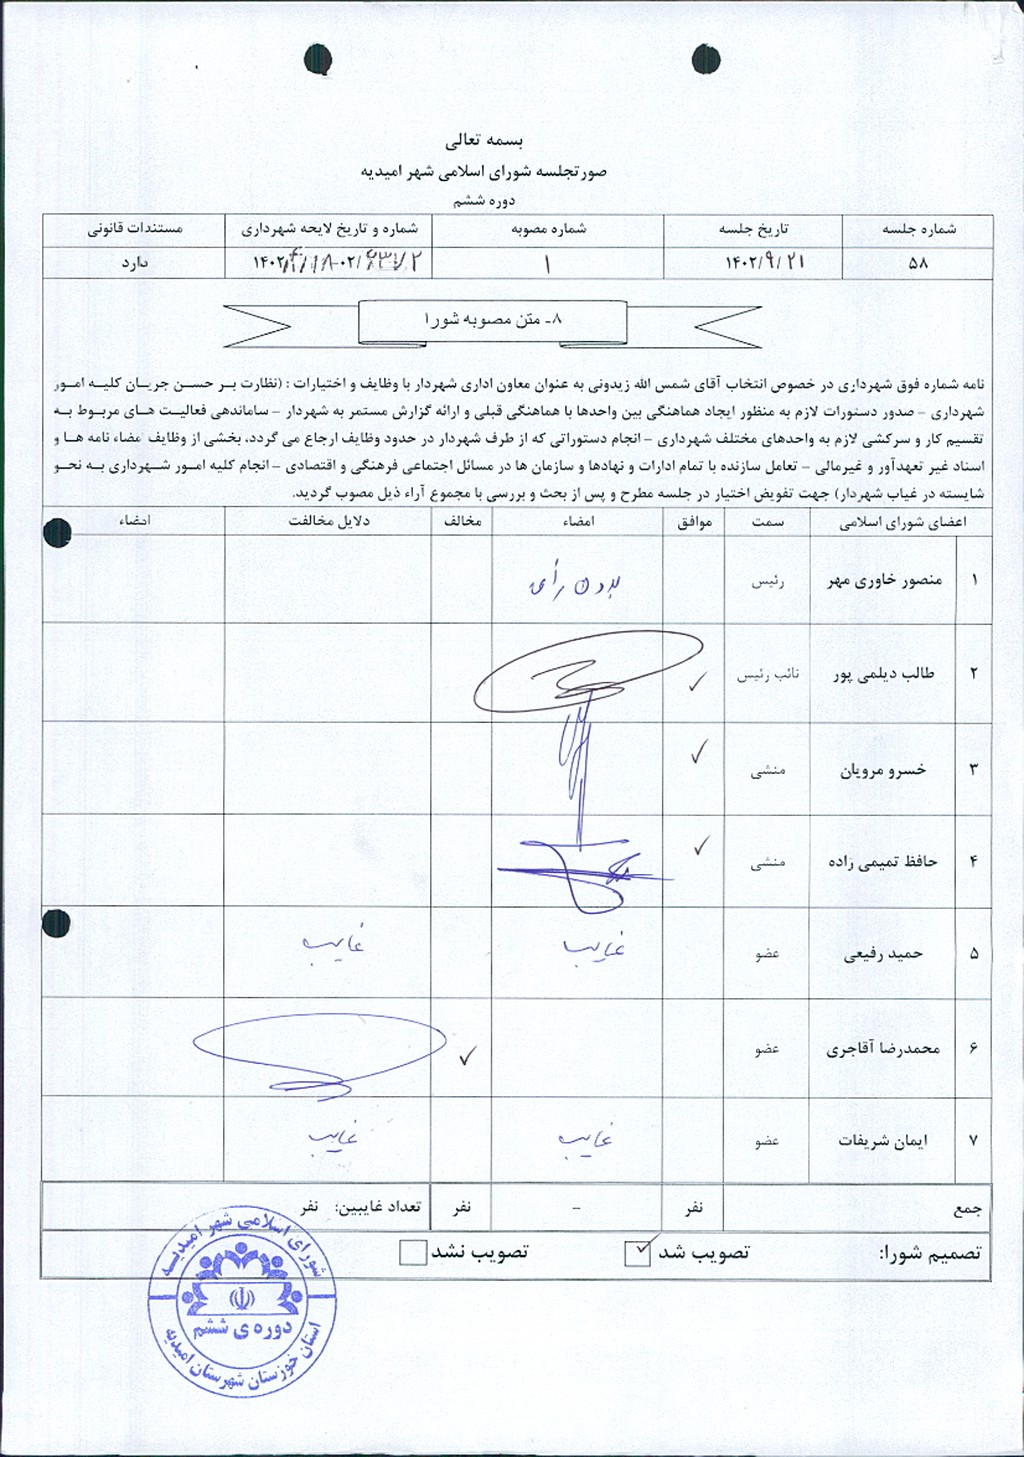 بسمه تعالی
صورتجلسه شورای اسلامی شهر امیدیه
دوره ششم
شماره جلسه تاریخ جلسه شماره مصوبه شماره و تاریخ لایحه شهرداری مستندات قانونی
۵۸ ۱۴۰۲/۹/۲۱ ۱ دارد
۸- متن مصوبه شورا
نامه شماره فوق شهرداری در خصوص انتخاب آقای شمس الله زیدونی به عنوان معاون اداری شهردار با وظایف و اختیارات : (نظارت بر حسن جریان کلیه امور
شهرداری – صدور دستورات لازم به منظور ایجاد هماهنگی بین واحدها با هماهنگی قبلی و ارائه گزارش مستمر به شهردار – ساماندهی فعالیت های مربوط به
تقسیم کار و سرکشی لازم به واحدهای مختلف شهرداری – انجام دستوراتی که از طرف شهردار در حدود وظایف ارجاع می گردد، بخشی از وظایف مضاء نامه ها و
اسناد غیر تعهدآور و غیرمالی – تعامل سازنده با تمام ادارات و نهادها و سازمان ها در مسائل اجتماعی فرهنگی و اقتصادی – انجام کلیه امور شهرداری به نحو
شایسته در غیاب شهردار) جهت تفویض اختیار در جلسه مطرح و پس از بحث و بررسی با مجموع آراء ذیل مصوب گردید.
اعضای شورای اسلامی سمت موافق امضاء مخالف دلایل مخالفت امضاء
۱ منصور خاوری مهر رئیس بدون رأی
۲ طالب دیلمی پور نائب رئیس ✓
۳ خسرو مرویان منشی ✓
۴ حافظ تمیمی زاده منشی ✓
۵ حمید رفیعی عضو غایب غایب
۶ محمدرضا آقاجری عضو ✓
۷ ایمان شریفات عضو غایب غایب
جمع نفر – نفر تعداد غایبین: نفر
تصمیم شورا: تصویب شد ✓ تصویب نشد
شورای اسلامی شهر امیدیه
دوره ی ششم
استان خوزستان شهرستان امیدیه